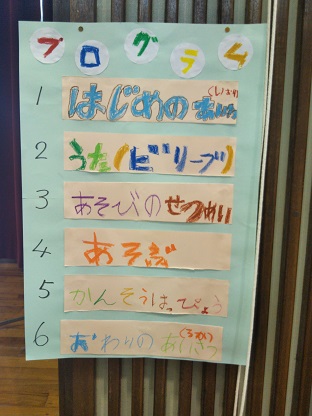 プログラム
1 はじめの あいさつ
2 うた「ビリーブ」
3 あそびの せつめい
4 あそぶ
5 かんそうはっぴょう
6 おわりの あいさつ